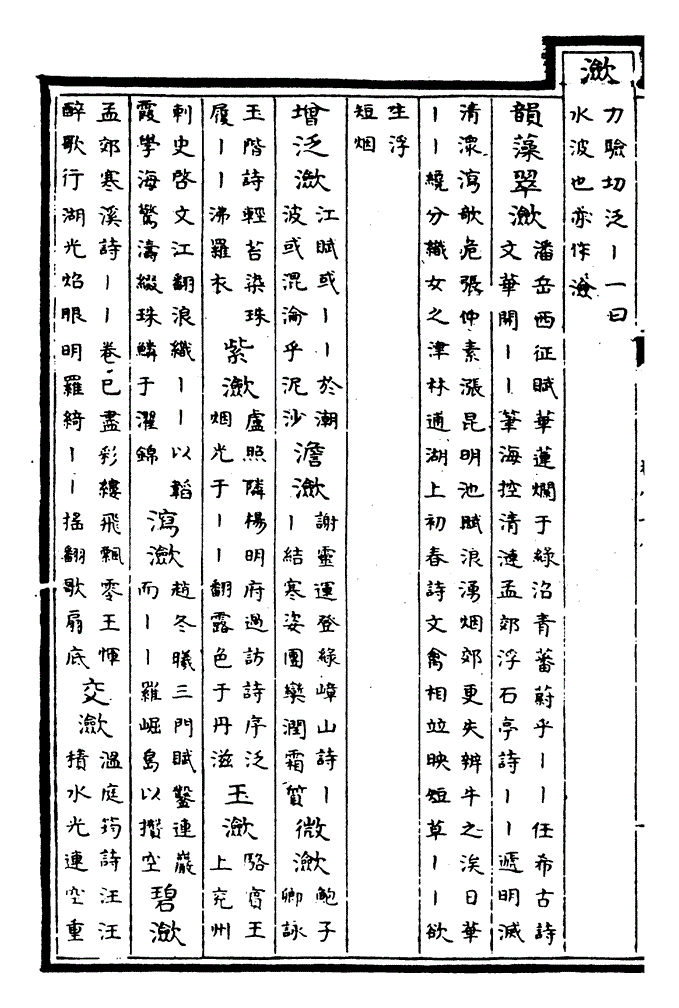 瀲
力驗切泛丨一曰
水波也亦作澰
韻藻
翠瀲
潘岳西征賦華蓮爛于綠沼青蕃蔚乎丨丨任希古詩
文華開丨丨筆海控清漣孟郊浮石亭詩丨丨遞明滅
清澴瀉歌危張仲素漲昆明池賦浪湧烟郊更失辨牛之涘日華
丨丨繞分織女之津林逋湖上初春詩文禽相竝映短草丨丨欲
生浮
短烟
增泛瀲
江賦或丨丨於潮
波或混淪乎泥沙
澹瀲
謝靈運登綠嶂山詩丨
丨結寒姿團欒潤霜質
微瀲
鮑子
卿詠
玉階詩輕苔染珠
履丨丨沸羅衣
紫瀲
盧照隣楊明府過訪詩序泛
烟光于丨丨翻露色于丹滋
玉瀲
駱賓王
上兗州
刺史啓文江翻浪織丨丨以韜
霞學海驚濤綴珠鱗于濯錦
瀉瀲
趙冬曦三門賦鑿連巖
而丨丨羅崛島以攢空
碧瀲
孟郊寒溪詩丨丨卷已盡彩縷飛飄零王惲
醉歌行湖光焰眼明羅綺丨丨搖翻歌扇底
交瀲
溫庭筠詩汪汪
積水光連空重